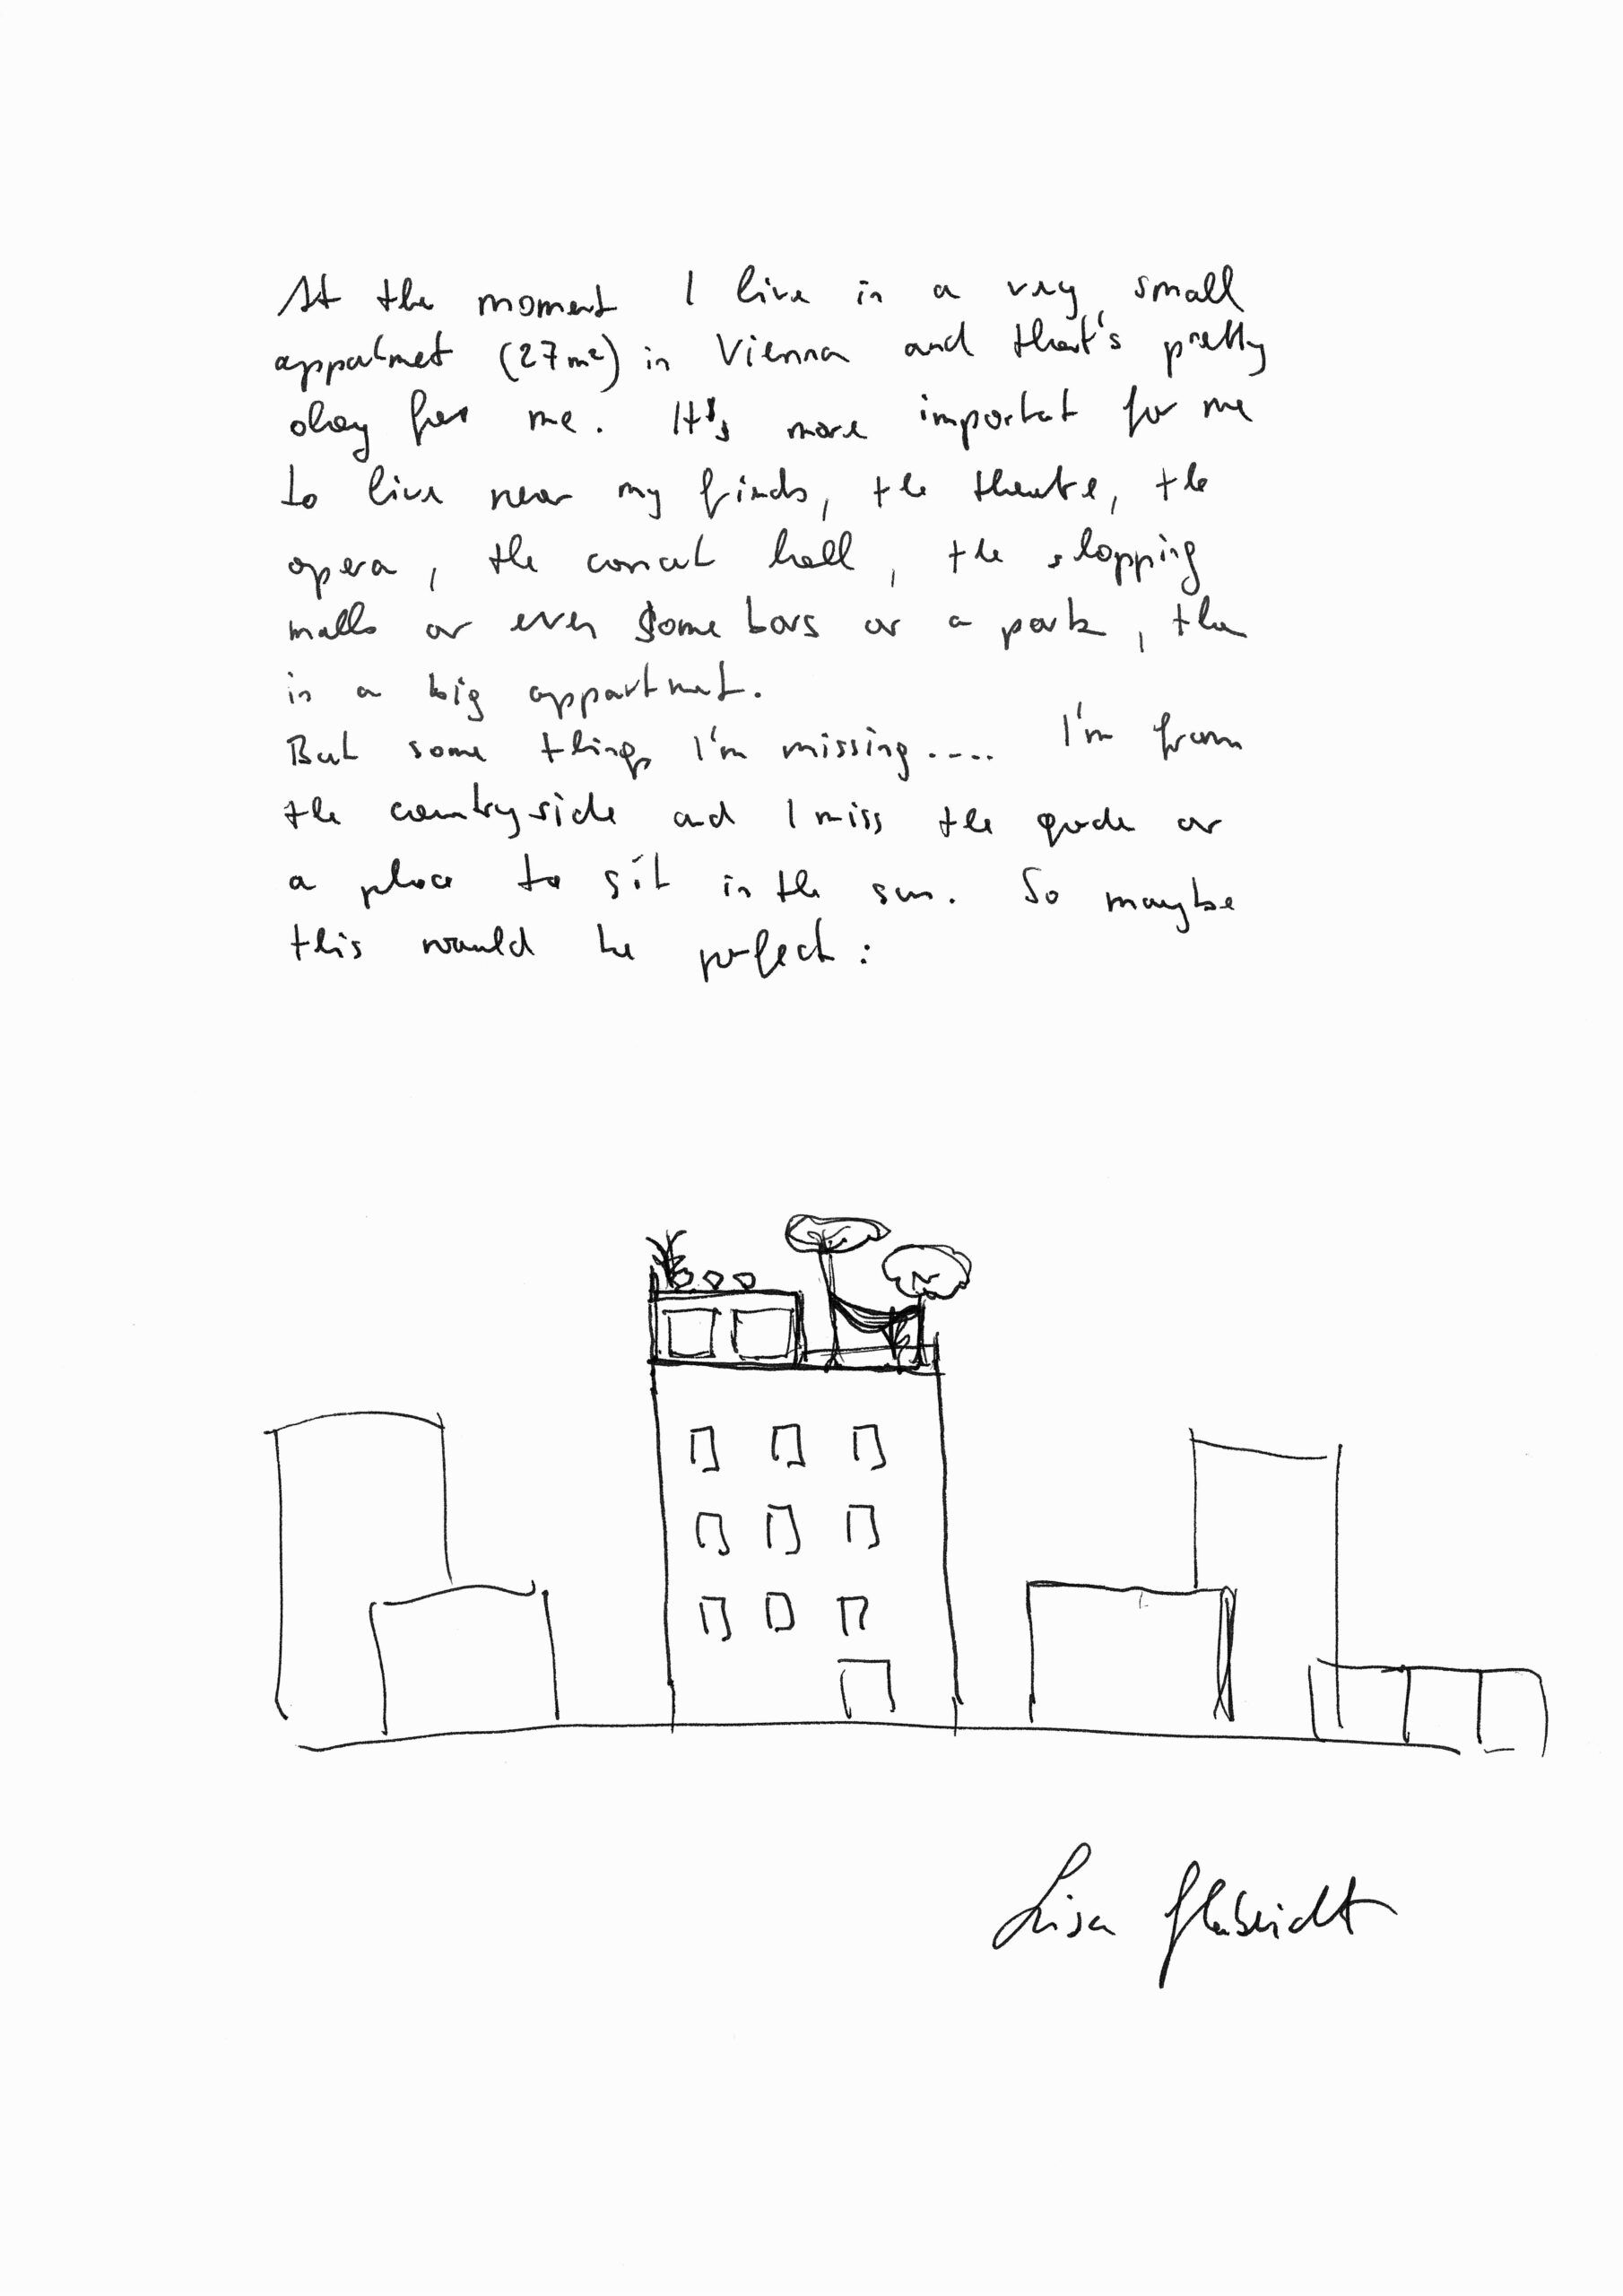 At the moment I live in a very small
appartment (27 m²) in Vienna and that's pretty
okay for me. It's more important for me
to live near my friends, the theatre, the
opera, the concert hall, the shopping
malls or even some bars or a park, then
in a big appartment.
But some things I'm missing.... I'm from
the countryside and I miss the garden or
a place to sit in the sun. So maybe
this would be perfect:
Lisa